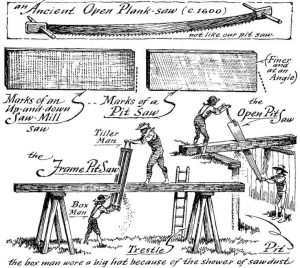 an Ancient Open Plank-saw (C.1600)
not like our pit saw
Marks of an
Up-and-down
Saw-Mill
saw
Marks of a
Pit Saw
(Finer
and at
an Angle)
the
Open Pit
Saw
Tiller
Man
the
Frame Pit Saw
Box
Man
Trestle
Pit
the box man wore a big hat because of the shower of sawdust